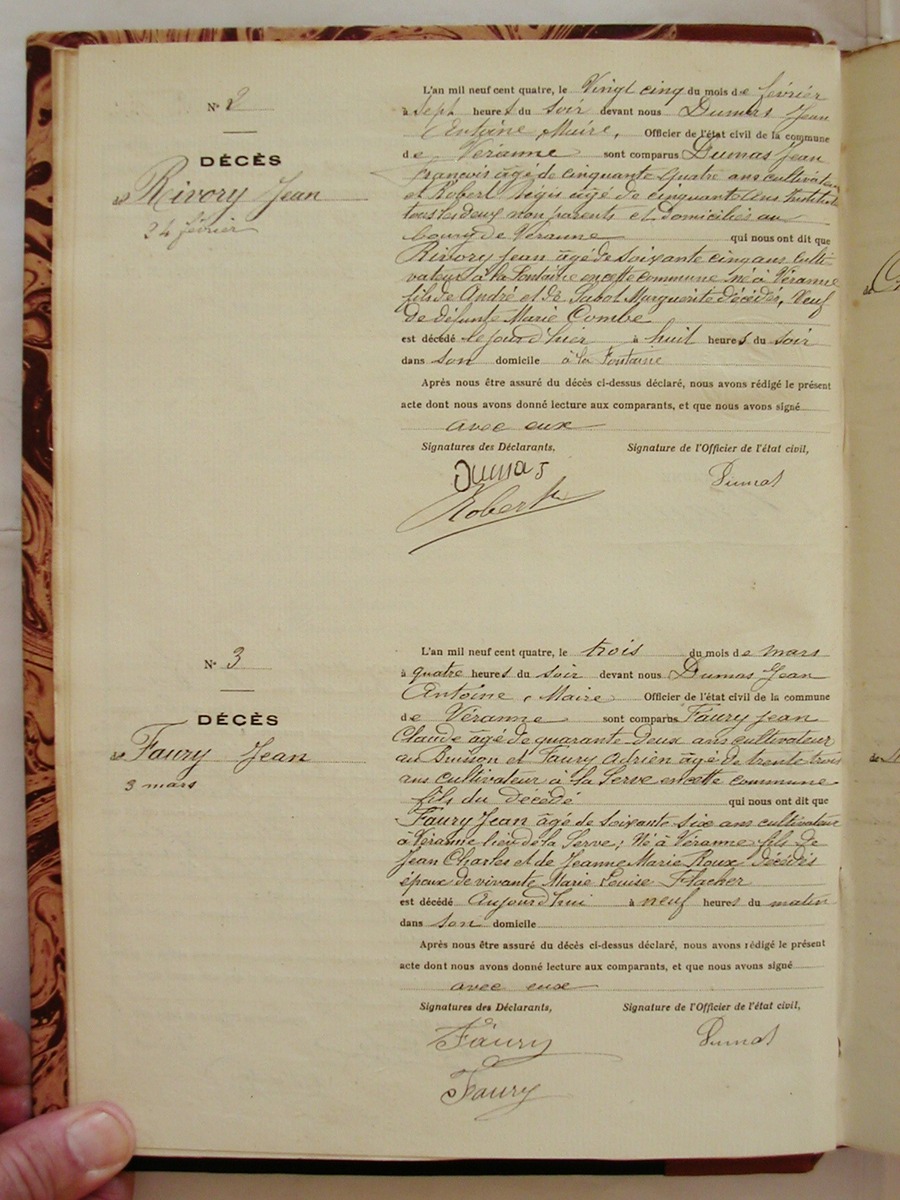 N° 2
DÉCÈS
de Rivory Jean
24 février
L'an mil neuf cent quatre, le Vingt cinq du mois de février
à Sept heures du soir devant nous Dumas Jean
Antoine Maire, Officier de l'état civil de la commune
de Véranne sont comparus Dumas Jean
François âgé de cinquante quatre ans cultivateur
et Robert Régis âgé de cinquante ans Instituteur
tous les deux non parents et domiciliés au
bourg de Véranne qui nous ont dit que
Rivory Jean âgé de soixante cinq ans culti-
vateur à la Fontaine en cette commune né à Véranne
fils de André et de Sabot Marguerite décédés, Veuf
de défunte Marie Combe
est décédé le jour d'hier à huit heures du soir
dans son domicile à la Fontaine
Après nous être assuré du décès ci-dessus déclaré, nous avons rédigé le présent
acte dont nous avons donné lecture aux comparants, et que nous avons signé
avec eux
Signatures des Déclarants, Signature de l'Officier de l'état civil,
Dumas Dumas
Robert
N° 3
DÉCÈS
de Faury Jean
3 mars
L'an mil neuf cent quatre, le trois du mois de mars
à quatre heures du soir devant nous Dumas Jean
Antoine, Maire Officier de l'état civil de la commune
de Véranne sont comparus Faury Jean
Claude âgé de quarante deux ans cultivateur
au Buisson et Faury Adrien âgé de trente trois
ans cultivateur à La Serve en cette commune
fils du décédé qui nous ont dit que
Faury Jean âgé de soixante six ans cultivateur
à Véranne lieu de la Serve; Né à Véranne fils de
Jean Charles et de Jeanne Marie Roux décédés
époux de vivante Marie Louise Flacher
est décédé Aujourd'hui à neuf heures du matin
dans son domicile
Après nous être assuré du décès ci-dessus déclaré, nous avons rédigé le présent
acte dont nous avons donné lecture aux comparants, et que nous avons signé
avec eux
Signatures des Déclarants, Signature de l'Officier de l'état civil,
Faury Dumas
Faury